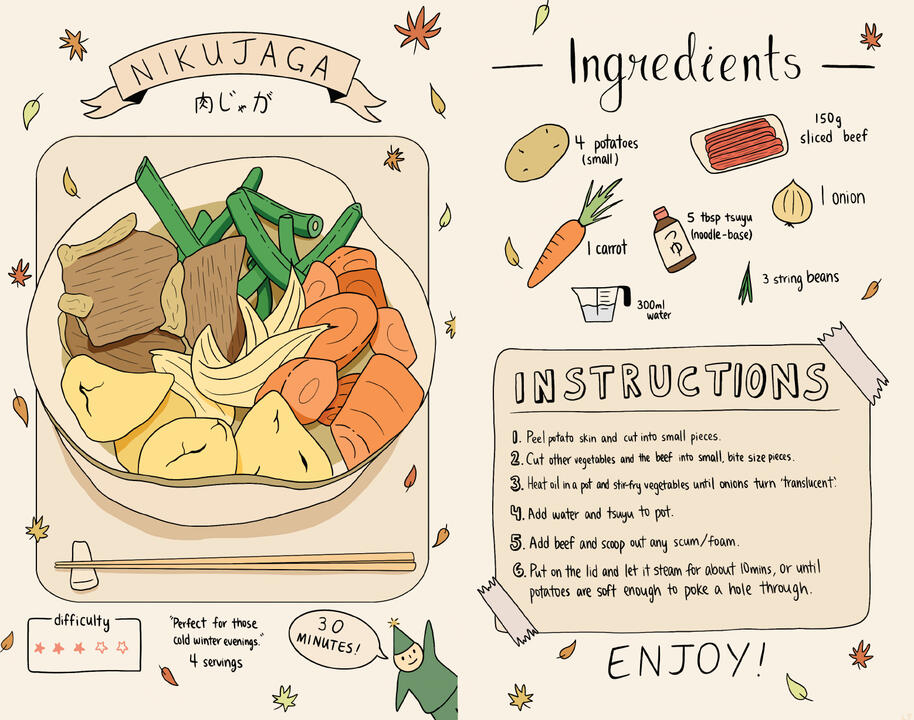 NIKUJAGA
肉じゃが
difficulty
"Perfect for those
cold winter evenings."
4 servings
30
MINUTES!
Ingredients
4 potatoes
(small)
150g
sliced beef
1 carrot
5 tbsp tsuyu
(noodle-base)
つゆ
1 onion
300ml
water
3 string beans
INSTRUCTIONS
1. Peel potato skin and cut into small pieces.
2. Cut other vegetables and the beef into small, bite size pieces.
3. Heat oil in a pot and stir-fry vegetables until onions turn 'translucent'.
4. Add water and tsuyu to pot.
5. Add beef and scoop out any scum/foam.
6. Put on the lid and let it steam for about 10mins, or until
potatoes are soft enough to poke a hole through.
ENJOY!